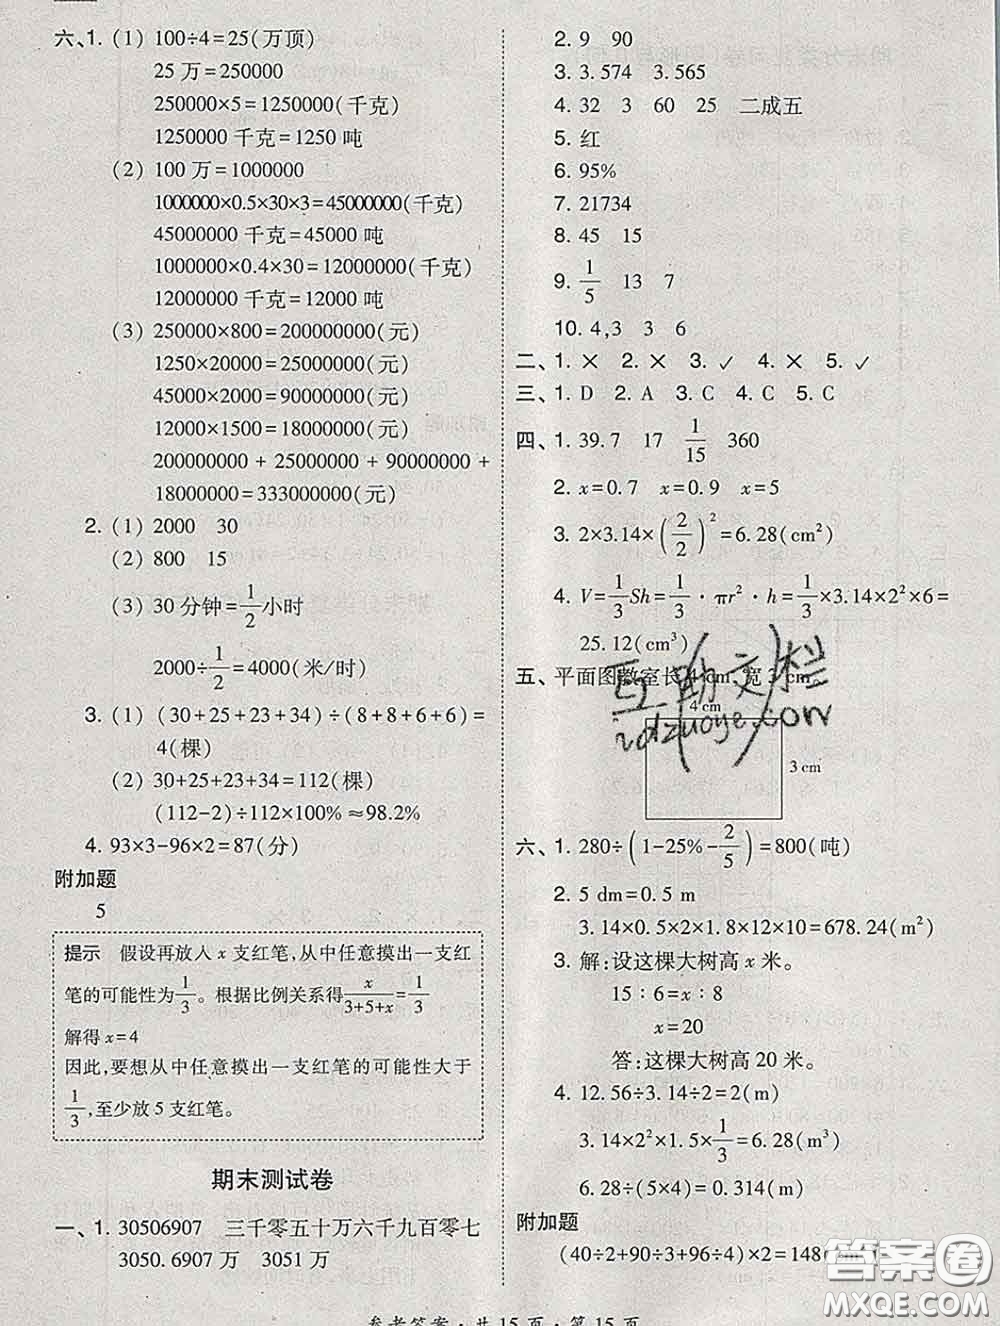 六、1. (1) 100÷4=25(万顶)
25万=250000
250000×5=1250000(千克)
1250000千克=1250吨
(2) 100万=1000000
1000000×0.5×30×3=45000000(千克)
45000000千克=45000吨
1000000×0.4×30=12000000(千克)
12000000千克=12000吨
(3) 250000×800=200000000(元)
1250×20000=25000000(元)
45000×2000=90000000(元)
12000×1500=18000000(元)
200000000+25000000+90000000+
18000000=333000000(元)
2. (1) 2000 30
(2) 800 15
(3) 30分钟=1/2小时
2000÷1/2=4000(米/时)
3. (1) (30+25+23+34)÷(8+8+6+6)=
4(棵)
(2) 30+25+23+34=112(棵)
(112-2)÷112×100%≈98.2%
4. 93×3-96×2=87(分)
附加题
5
提示 假设再放人x支红笔,从中任意摸出一支红
笔的可能性为1/3。根据比例关系得x/(3+5+x)=1/3
解得x=4
因此,要想从中任意摸出一支红笔的可能性大于
1/3,至少放5支红笔。
期末测试卷
一、1. 30506907 三千零五十万六千九百零七
3050.6907万 3051万
2. 9 90
3. 3.574 3.565
4. 32 3 60 25 二成五
5. 红
6. 95%
7. 21734
8. 45 15
9. 1/5 13 7
10. 4,3 3 6
二、1. × 2. × 3. ✓ 4. × 5. ✓
三、1. D 2. A 3. C 4. C 5. C
四、1. 39.7 17 1/15 360
2. x=0.7 x=0.9 x=5
3. 2×3.14×(2/2)²=6.28(cm²)
4. V=1/3Sh=1/3·πr²·h=1/3×3.14×2²×6=
25.12(cm³)
五、平面图教室长4 cm,宽3 cm。
4 cm
3 cm
六、1. 280÷(1-25%-2/5)=800(吨)
2. 5 dm=0.5 m
3.14×0.5×2×1.8×12×10=678.24(m²)
3. 解:设这棵大树高x米。
15:6=x:8
x=20
答:这棵大树高20米。
4. 12.56÷3.14÷2=2(m)
3.14×2²×1.5×1/3=6.28(m³)
6.28÷(5×4)=0.314(m)
附加题
(40÷2+90÷3+96÷4)×2=148(cm²)
参考答案·共15页·第15页
互助文栏
答案圈
MXQE.COM